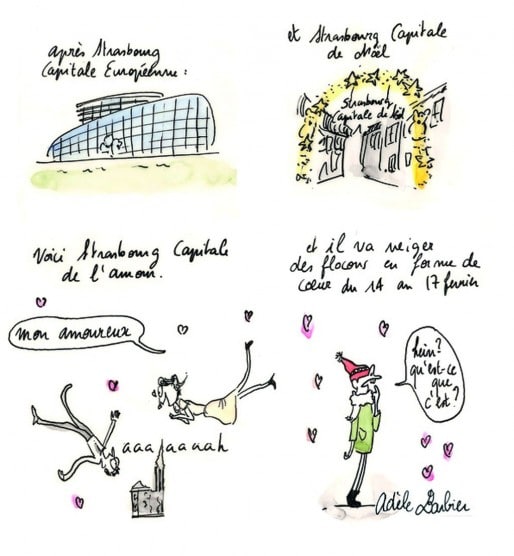 après Strasbourg
Capitale Européenne :
et Strasbourg Capitale
de Noël
Strasbourg
Capitale de Noël
Voici Strasbourg Capitale
de l'amour.
mon amoureux
aaaaaaaah
et il va neiger
des flocons en forme de
coeur du 14 au 17 février
hein?
qu'est-ce
que
c'est?
Adèle Barbier